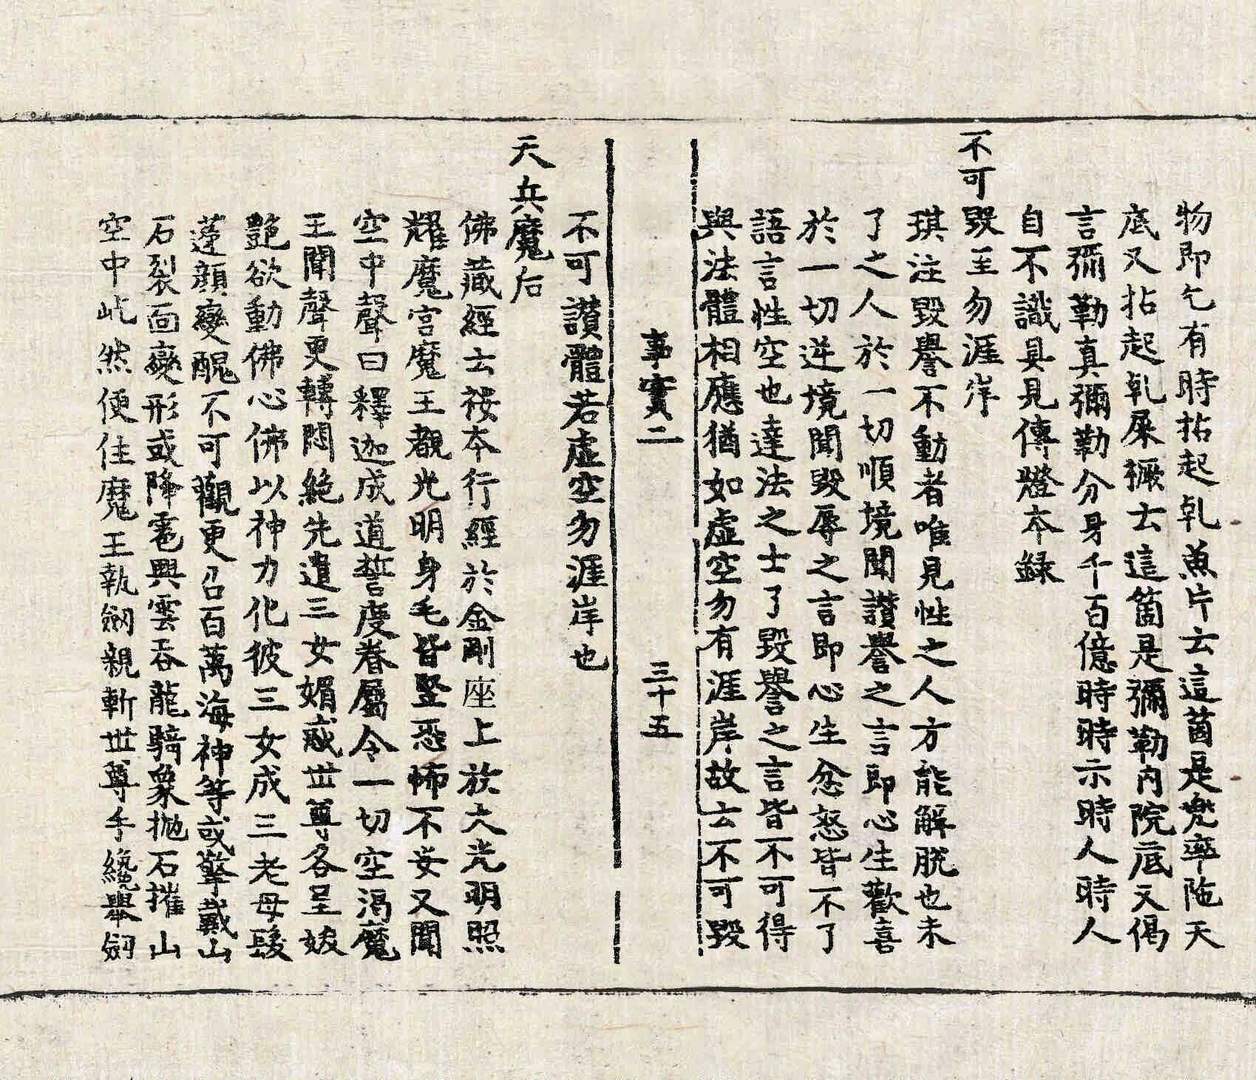 物即乞有時拈起乹魚片云這箇是兠率陁天
底又拈起乹屎橛士這箇是彌勒內院底又偈
言彌勒真彌勒分身千百億時時示時人時人
自不識具見傳燈本録
不可毀至勿涯岸
琪注毀譽不動者唯見性之人方能解脫也未
了之人於一切順境聞讃譽之言即心生歡喜
於一切逆境聞毀辱之言即心生忿怒皆不了
語言性空也達法之士了毀譽之言皆不可得
與法體相應猶如虛空勿有涯岸故士不可毀
事實二 三十五
不可讃體若虛空勿涯岸也
天兵魔后
佛藏經士按本行經於金剛座上放大光明照
耀魔宮魔王覩光明身毛皆竪恐怖不安又聞
空中聲曰釋迦成道誓度眷屬令一切空渴魔
王聞聲更轉悶絶先遣三女媚惑丗尊各呈姣
艷欲動佛心佛以神力化彼三女成三老母髮
蓬顔變醜不可觀更召百萬海神等或擎戴山
石裂面變形或降雹興雲吞龍騎象抛石摧山
空中屹然便住魔王執劒親斬丗尊手纔舉劒